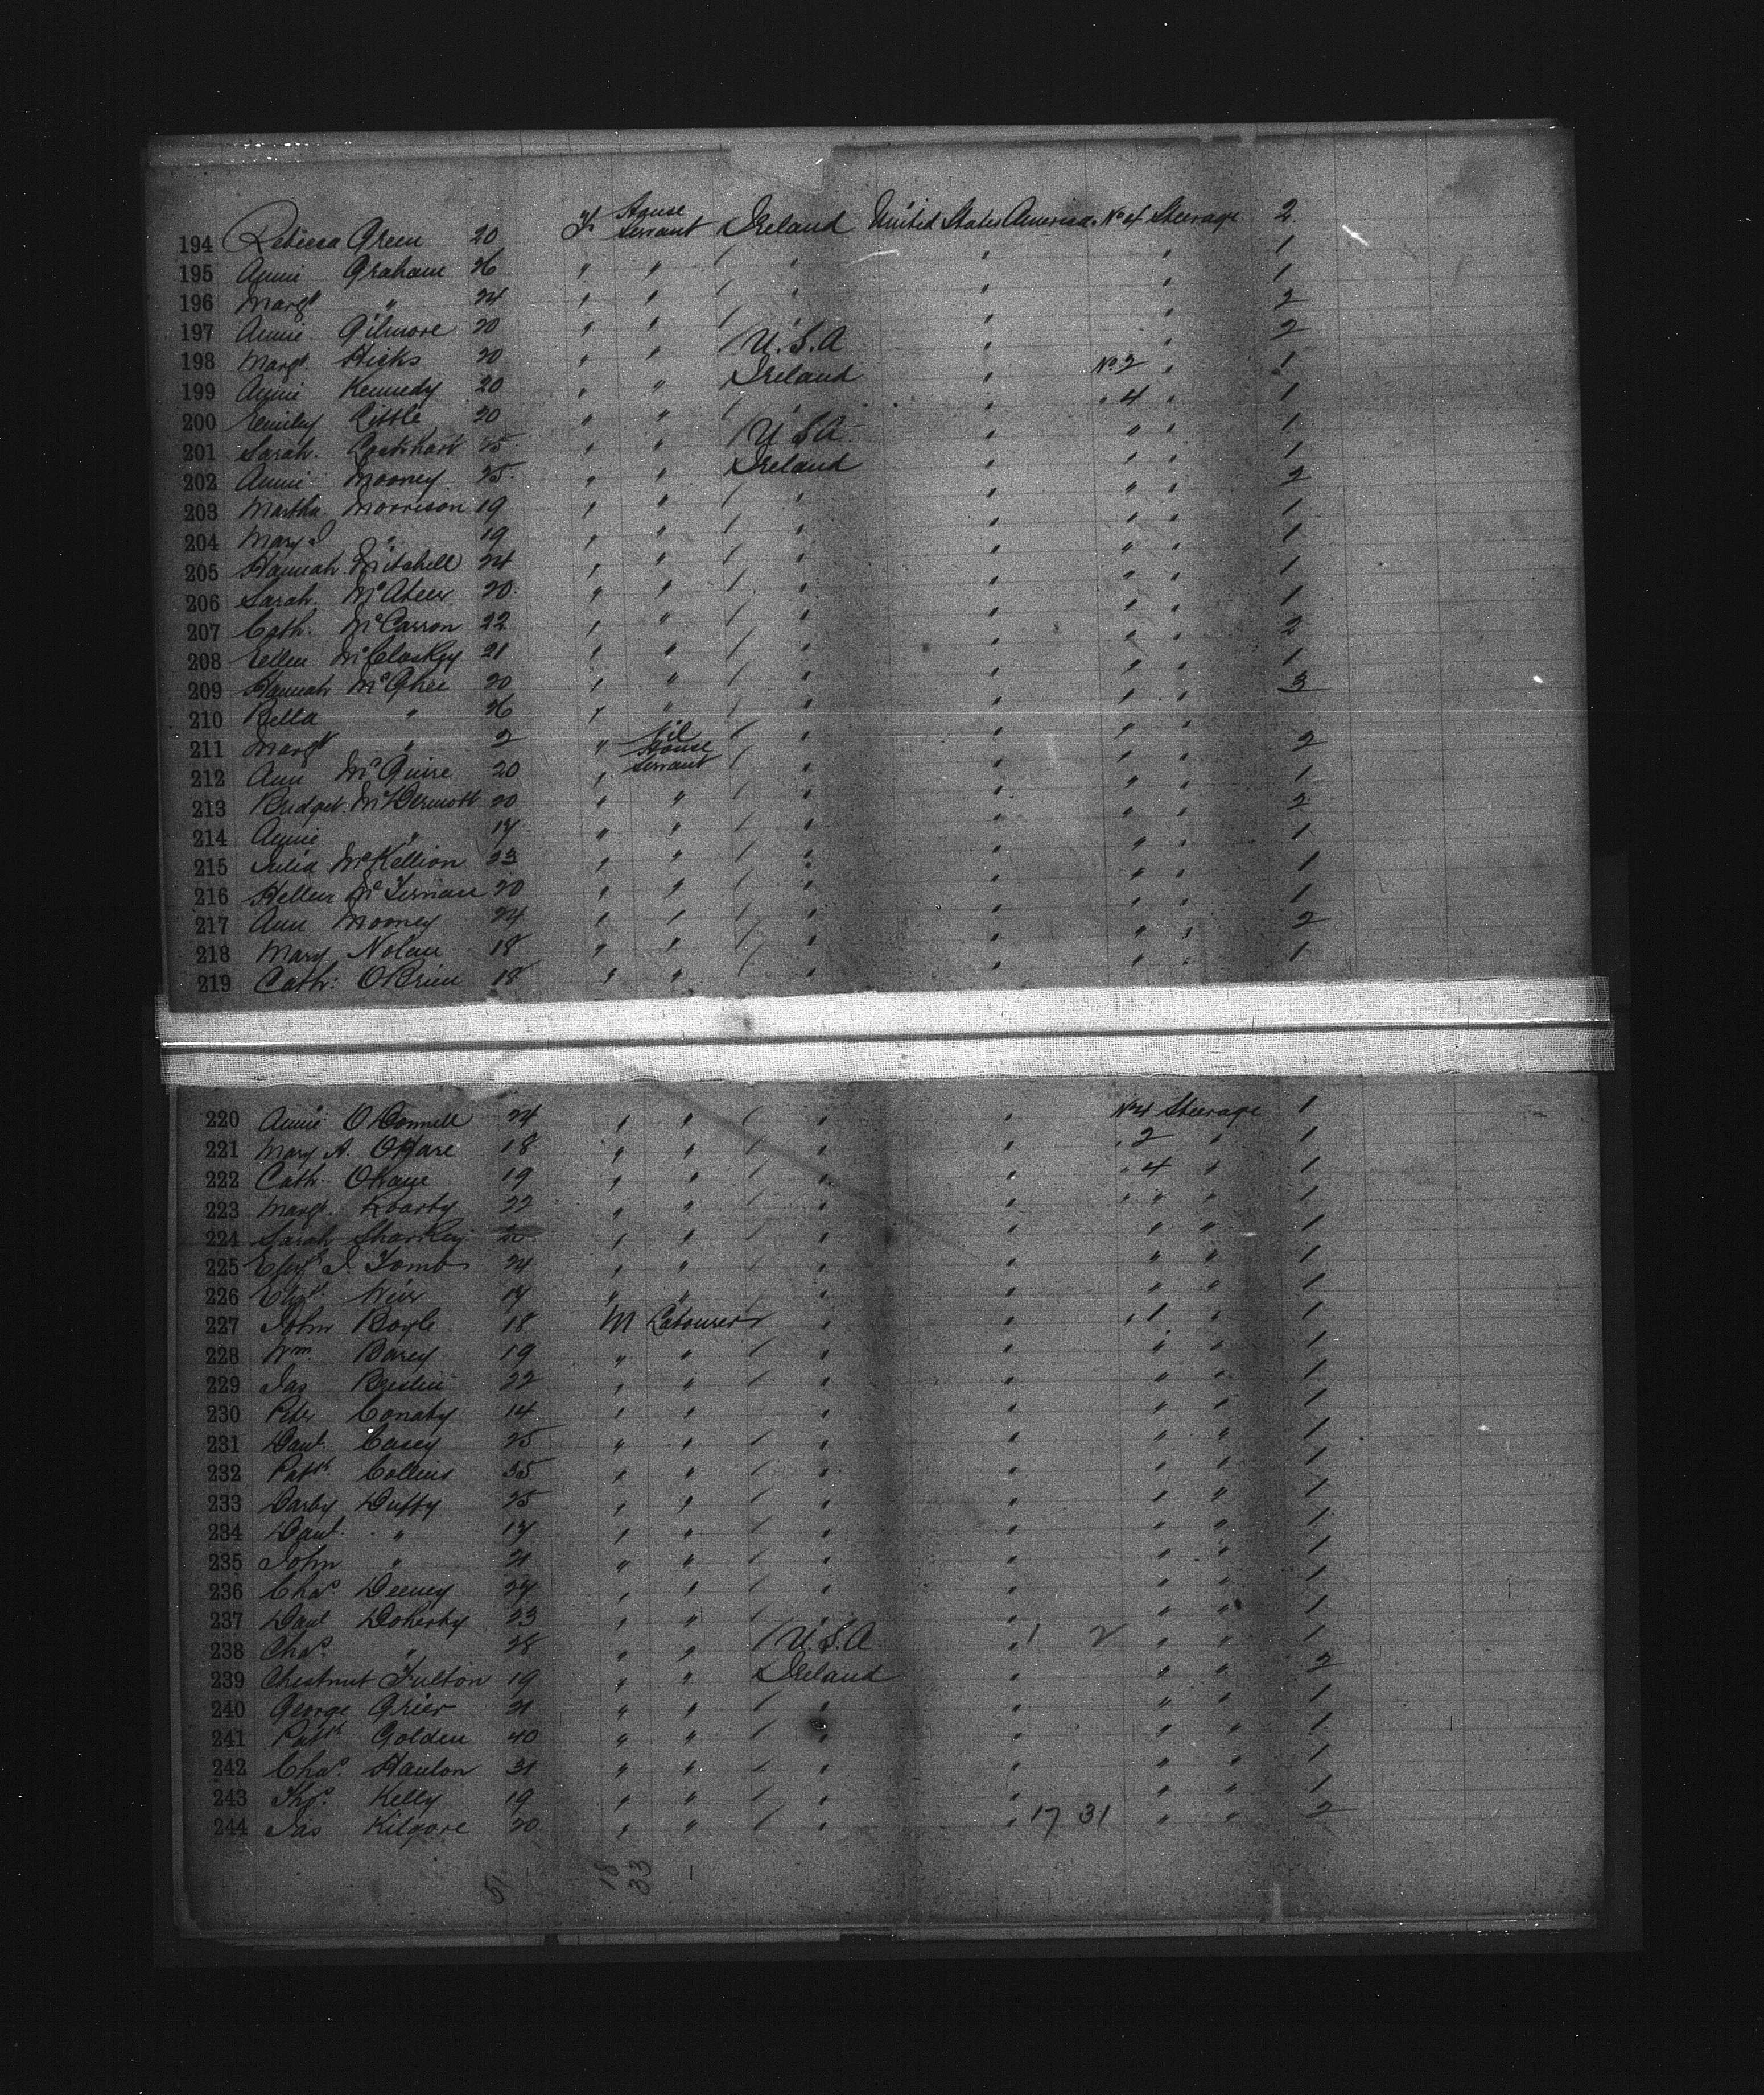 194 Rebecca Green 20 F House Servant Ireland United States America No 4 Steerage 2
195 Annie Graham 26 " " " " " " 1
196 Margt " 24 " " " " " " 1
197 Annie Gilmore 20 " " " " " " 2
198 Margt. Hicks 20 " " U.S.A " " 2
199 Annie Kennedy 20 " " Ireland " No 2 " 1
200 Emily Little 20 " " " " " 4 " 1
201 Sarah. Lockhart 25 " " U.S.A " " " 1
202 Annie Mooney 25 " " Ireland " " " 1
203 Martha Morrison 19 " " " " " " 2
204 Mary J " 19 " " " " " " 1
205 Hannah Mitchell 24 " " " " " " 1
206 Sarah McAteer 20 " " " " " " 1
207 Cath: McCarron 22 " " " " " " 1
208 Ellen McCloskey 21 " " " " " " 2
209 Hannah McGhee 20 " " " " " " 1
210 Bella " 26 " " " " " " 3
211 Margt " 2 " Nil " " " "
212 Ann McGuire 20 " House Servant " " " " 2
213 Bridget McDermott 20 " " " " " " 1
214 Annie " 17 " " " " " " 2
215 Julia McKellion 23 " " " " " " 1
216 Hellen McTernan 20 " " " " " " 1
217 Ann Mooney 24 " " " " " " 1
218 Mary Nolan 18 " " " " " " 2
219 Cath: OBrien 18 " " " " " " 1
220 Annie O'Donnell 24 " " " " No 4 Steerage 1
221 Mary A. OHare 18 " " " " " 2 " 1
222 Cath: OKane 19 " " " " " 4 " 1
223 Margt. Roarty 22 " " " " " " " 1
224 Sarah Sharkey 20 " " " " " " 1
225 Elizth J. Tomb 24 " " " " " " 1
226 Elizth Weir 17 " " " " " " 1
227 John Boyle 18 M Labourer " " " 1 " 1
228 Wm. Barey 19 " " " " " " 1
229 Jas Breslin 22 " " " " " " 1
230 Peter Conaty 14 " " " " " " 1
231 Danl. Casey 25 " " " " " " 1
232 Patk Collins 35 " " " " " " 1
233 Darby Duffy 25 " " " " " " 1
234 Danl. " 17 " " " " " " 1
235 John " 21 " " " " " " 1
236 Chas. Deeney 27 " " " " " " 1
237 Danl Doherty 23 " " " " " " 1
238 Chas. " 28 " " U.S.A " 1 2 " " 1
239 Chestnut Fulton 19 " " Ireland " " " 2
240 George Grier 21 " " " " " " 1
241 Patk Golden 40 " " " " " " 1
242 Chas. Hanlon 31 " " " " " " 1
243 Thos. Kelly 19 " " " " " " 1
244 Jas Kilgore 20 " " " " 17 31 " " 2
51 18 33